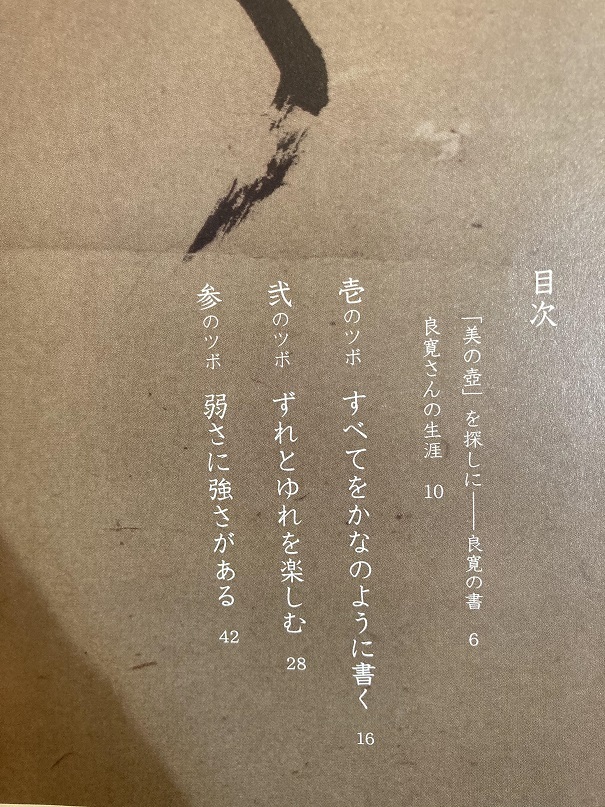 目次
「美の壺」を探しに――良寛の書 6
良寛さんの生涯 10
壱のツボ すべてをかなのように書く 16
弐のツボ ずれとゆれを楽しむ 28
参のツボ 弱さに強さがある 42